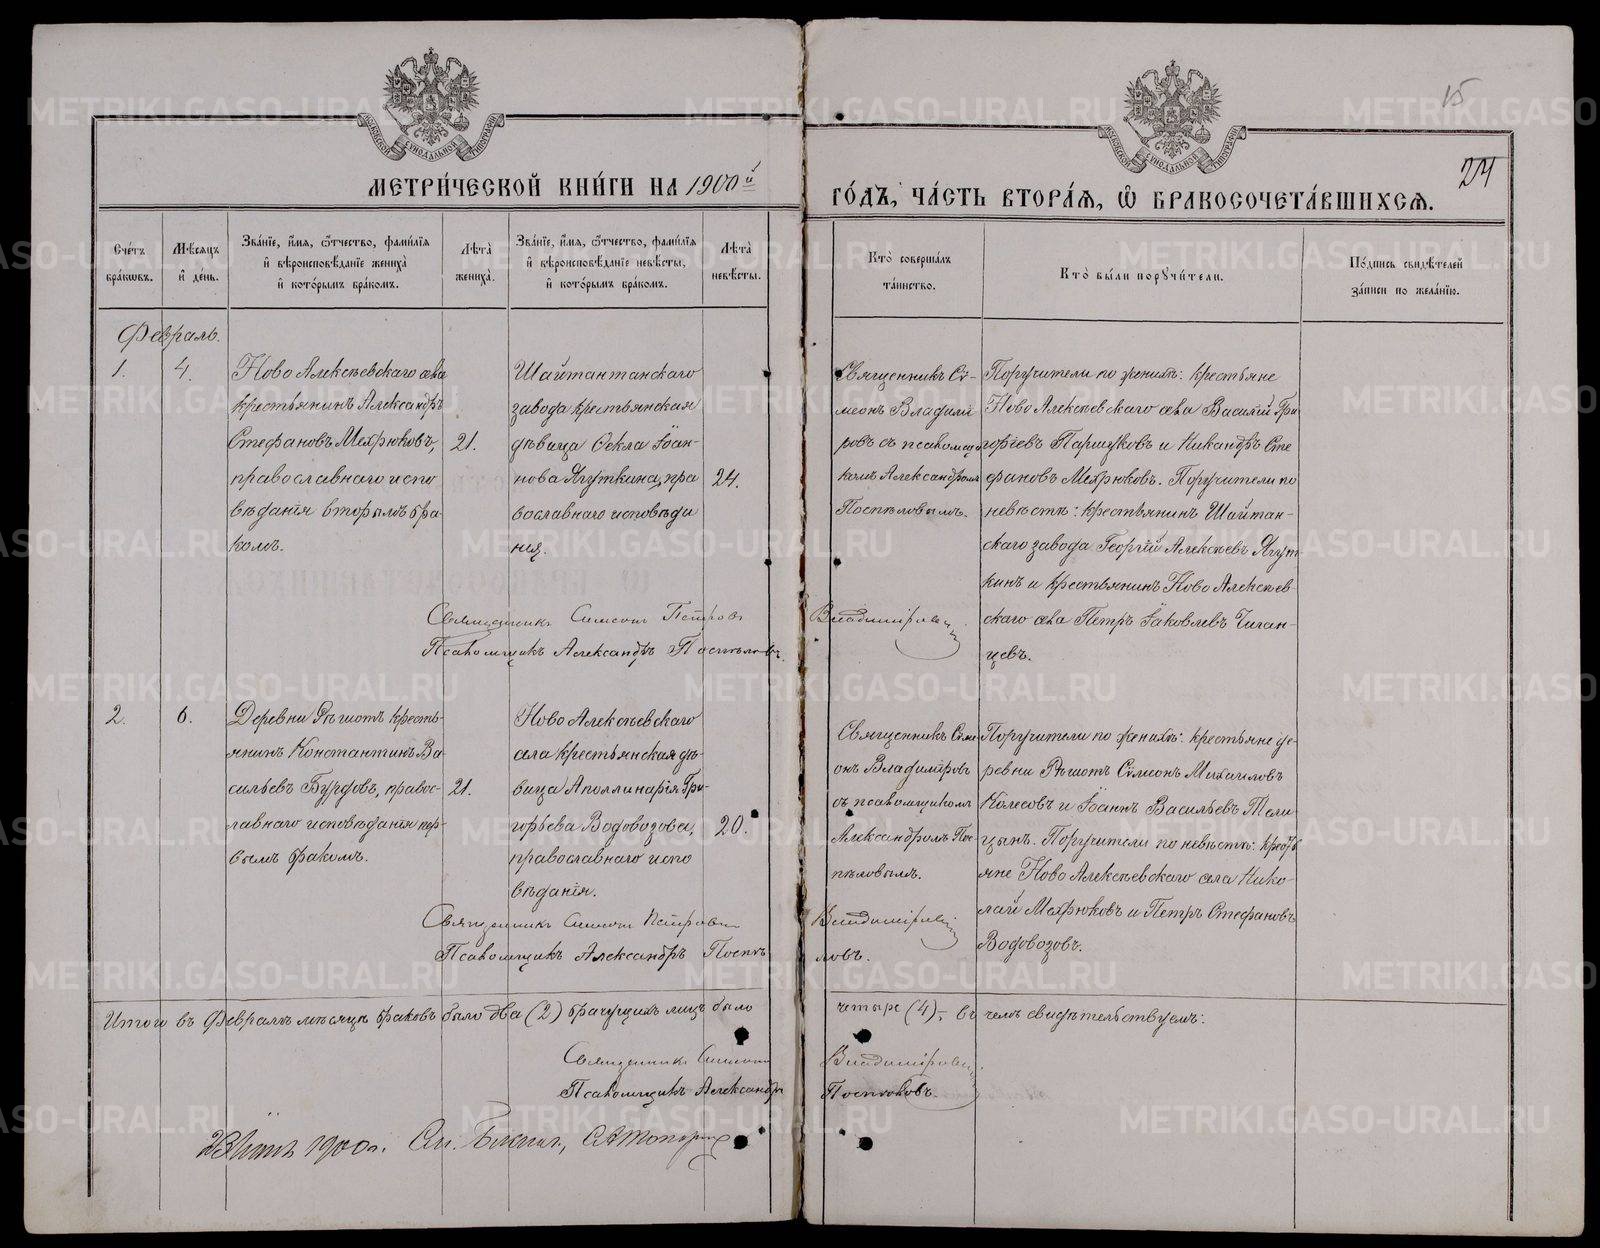 15
24
МОСКОВСКОЙ СѴНОДАЛЬНОЙ ТИПОГРАФІИ
МОСКОВСКОЙ СѴНОДАЛЬНОЙ ТИПОГРАФІИ
МЕТРИ́ЧЕСКОЙ КНИ́ГИ НА 1900й ГО́ДЪ, ЧА́СТЬ ВТОРА́Ѧ, Ѡ҆ БРАКОСОЧЕТА́ВШИХСѦ.
Сче́тъ бра́кѡвъ.
Мѣ́сѧцъ и҆ де́нь.
Зва́нїе, и҆́мѧ, ѻ҆́тчество, фами́лїѧ и҆ вѣроисповѣ́данїе жениха̀ и҆ кото́рымъ бра́комъ.
Лѣ́та жениха̀.
Зва́нїе, и҆́мѧ, ѻ҆́тчество, фами́лїѧ и҆ вѣроисповѣ́данїе невѣ́сты, и҆ кото́рымъ бра́комъ.
Лѣ́та невѣ́сты.
Кто̀ соверша́лъ та́инство.
Кто̀ бы́ли порꙋчи́тели.
По́дпись свидѣ́телей за́писи по жела́нїю.
Февраль.
1.
4.
Ново Алексѣевскаго села
крестьянинъ Александръ
Стефановъ Мехрюковъ,
православнаго испо
вѣданія вторымъ бра
комъ.
21.
Шайтантанскаго
завода крестьянская
дѣвица Ѳекла Іоан-
нова Ягуткина, пра
вославнаго исповѣда
нія.
24.
Священникъ Сѵ-
меонъ Владимі
ровъ съ псаломщи
комъ Александромъ
Поспѣловымъ.
Поручители по женихѣ: крестьяне
Ново Алексѣевскаго села Василій Гри
горьевъ Паршуковъ и Никандръ Сте
фановъ Мехрюковъ. Поручители по
невѣстѣ: крестьянинъ Шайтан-
скаго завода Георгій Алексѣевъ Ягут
кинъ и крестьянинъ Ново Алексѣев-
скаго села Петръ Іаковлевъ Чиган-
цевъ.
Священникъ Симеонъ Петровъ Владиміровъ
Псаломщикъ Александръ Поспѣловъ.
2.
6.
Деревни Рѣшотъ кресть-
янинъ Константинъ Ва
сильевъ Бурдовъ, правос-
лавнаго исповѣданія пер-
вымъ бракомъ.
21.
Ново Алексѣевскаго
села крестьянская дѣ-
вица Аполлинарія Гри-
горьева Водовозова,
православнаго испо
вѣданія.
20.
Священникъ Симе
онъ Владиміровъ
съ псаломщикомъ
Александромъ Пос-
пѣловымъ.
Поручители по женихѣ: крестьяне де-
ревни Рѣшотъ Сѵмеонъ Михаиловъ
Колесовъ и Іоаннъ Васильевъ Тели
цынъ. Поручители по невѣстѣ: кресть
яне Ново Алексѣевскаго села Нико-
лай Мехрюковъ и Петръ Стефановъ
Водовозовъ.
Священникъ Симеонъ Петровъ Владиміровъ
Псаломщикъ Александръ Поспѣ ловъ.
Итого въ Февралѣ мѣсяцѣ браковъ было два (2) брачущихъ лицъ было четыре (4), въ чемъ свидѣтельствуемъ:
Священникъ Симеонъ Владиміровъ
Псаломщикъ Александръ Поспѣловъ.
1900 г.
METRIKI.GASO-URAL.RU